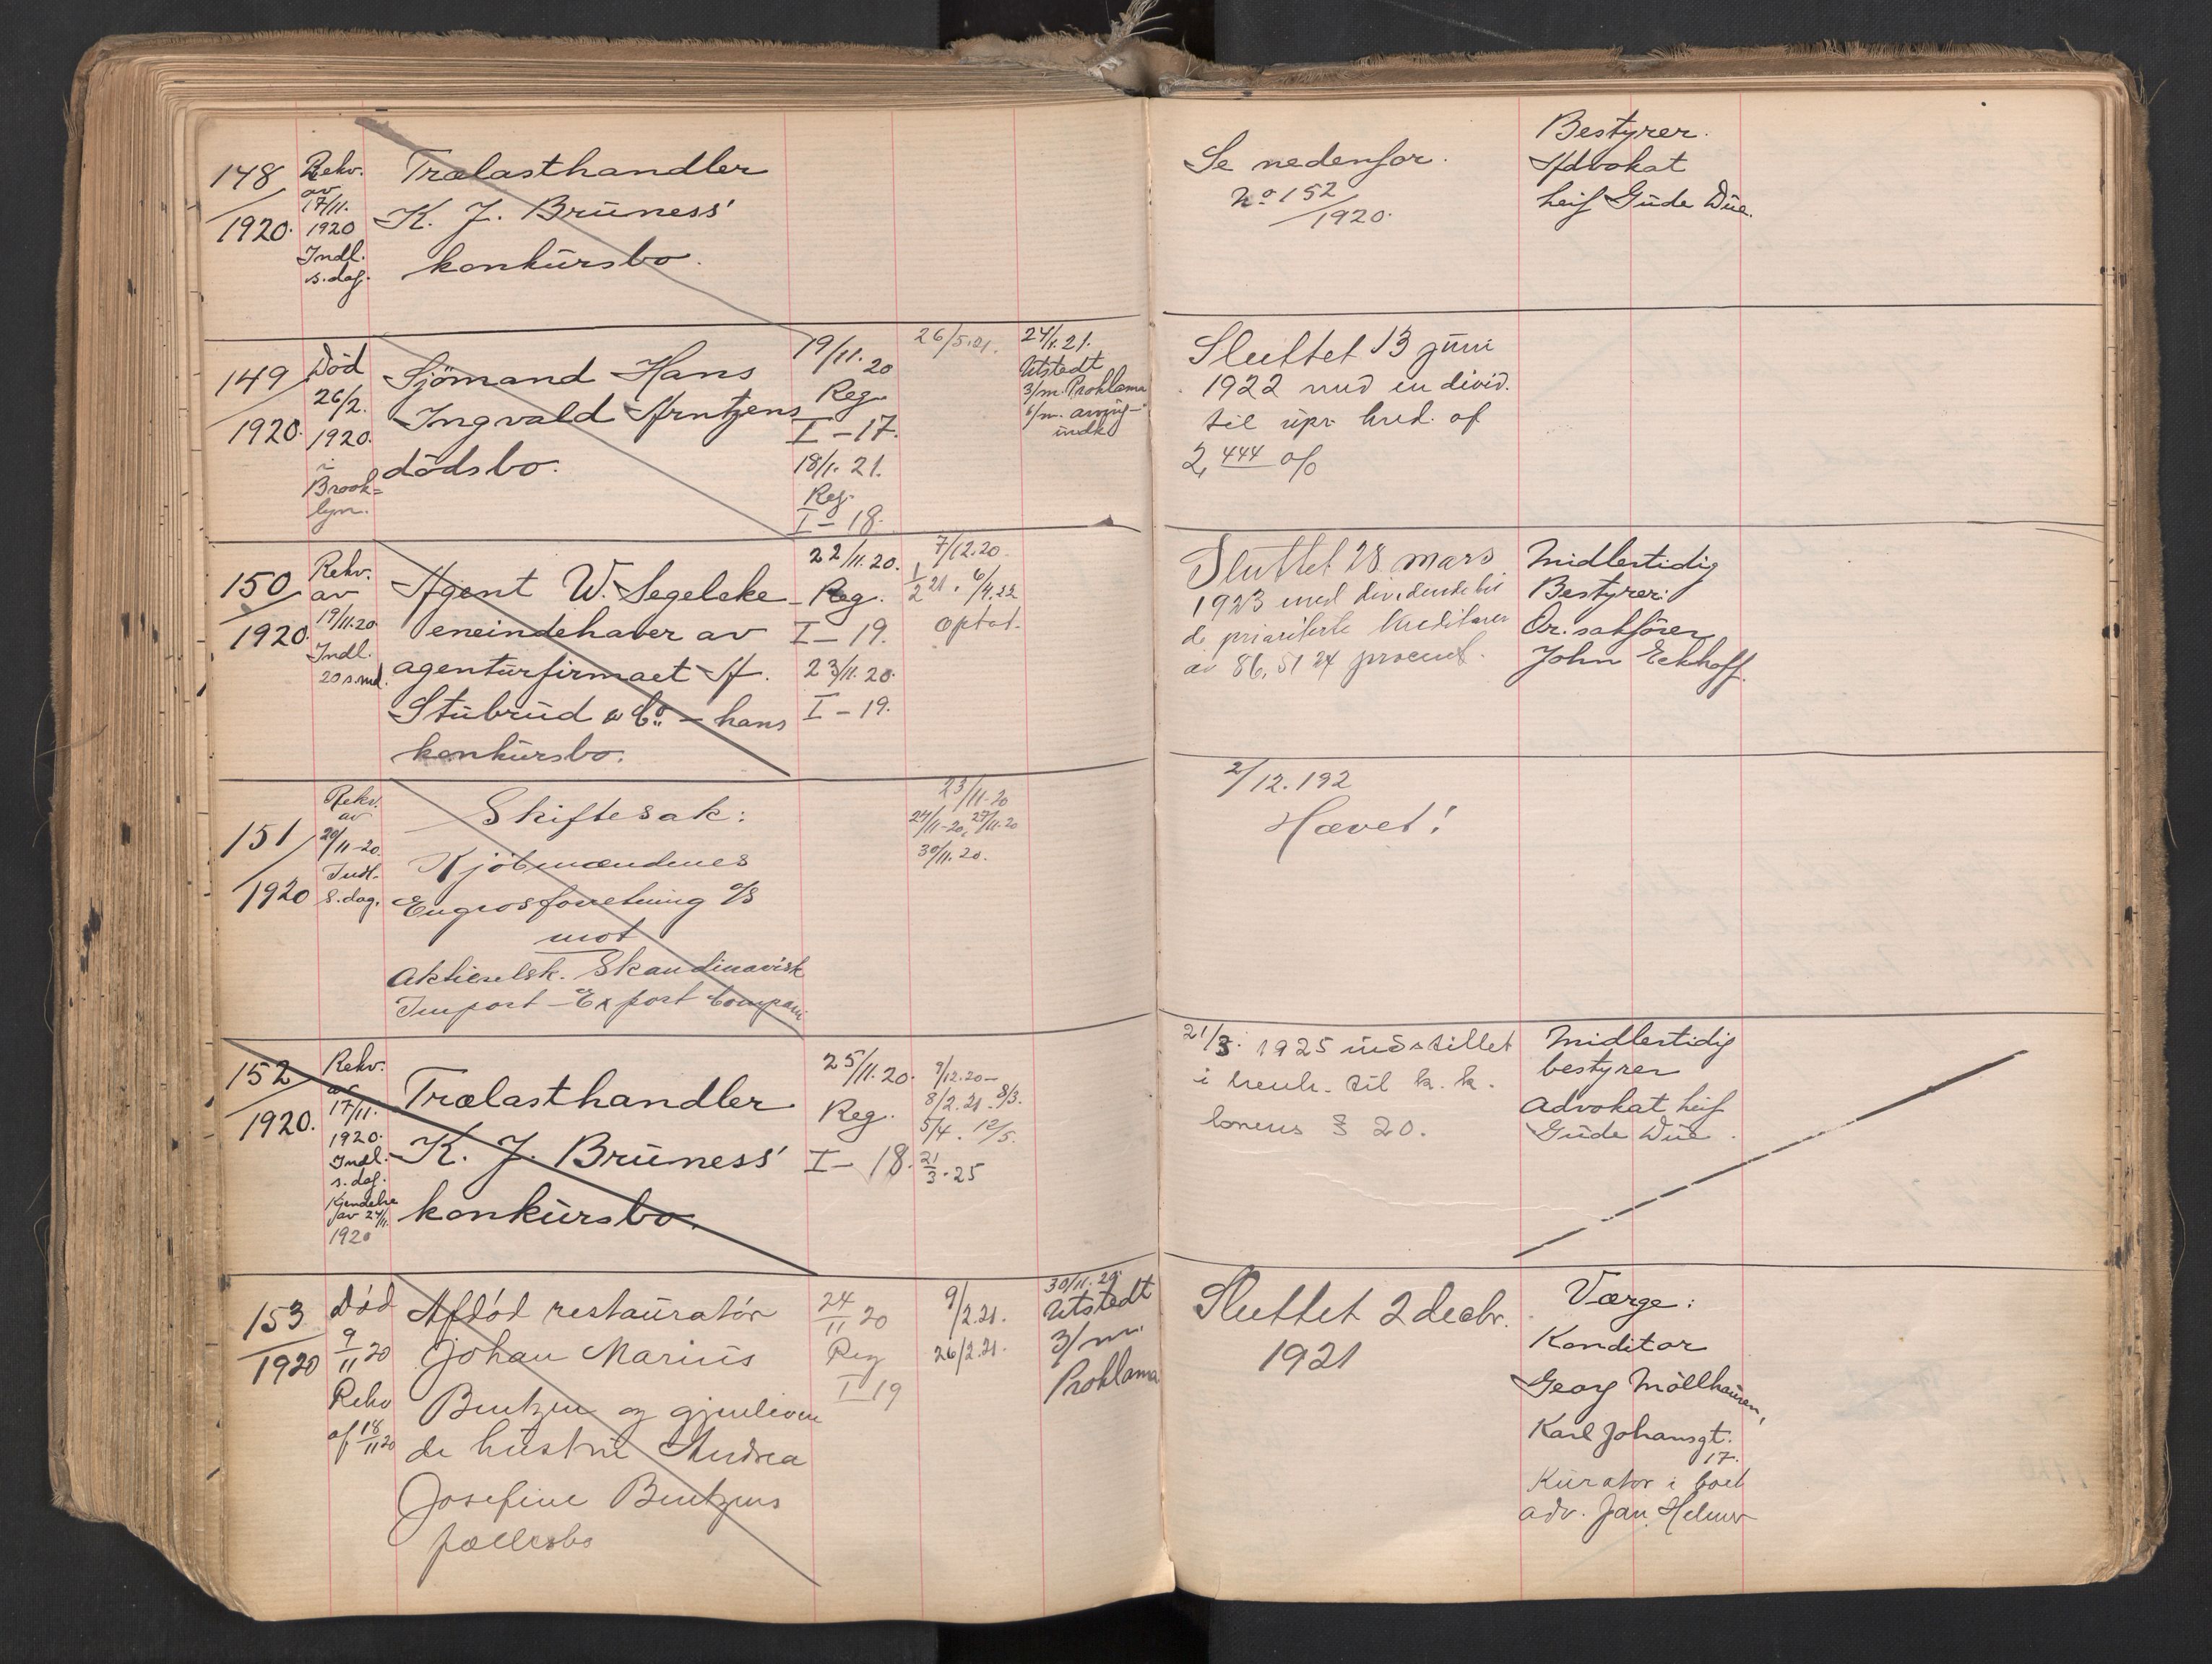 148/1920.
Rekv.
av
17/11.
1920
Indl.
s. dag.
Trælasthandler
K. J. Brūness'
konkūrsbo.
Se nedenfor.
No 152/1920.
Bestyrer.
Advokat
Leif Gūde Dūe.
149/1920.
Död
26/2.
1920.
i
Brook=
lyn.
Sjömand Hans
Ingvald Arntzens
dödsbo.
19/11.20
Reg.
I-17.
18/1. 21.
Reg.
I-18.
26/5.21.
24/1.21.
Utstedt
3/m. Proklama
Sluttet 13 jūni
1922 med en divid.
til ūpr. kred. af
2,444 o/o
150/1920.
Rekv.
av
19/11.20
Indl.
20 s. md.
Agent W. Segelcke
eneindehaver av
agentūrfirmaet A.
Stūbrūd & Co. - hans
konkūrsbo.
22/11.20.
Reg.
I-19.
23/11.20.
I-19.
7/12.20.
1/2 21. 6/4.22
optat.
Sluttet 28 mars
1923 med dividende til
de prioriterte kreditorer
av 86,5124 procent.
Midlertidig
Bestyrer:
Or. sakförer
John Eckhoff.
151/1920
Rekv.
av
20/11-20.
Indl.
s. dag.
Skiftesak:
Kjöbmændenes
Engrosforretning A/S
mot
Aktieselsk. Skandinavisk
Import-Export Compani
23/11-20
24/11-20, 27/11-20
30/11.20.
2/12.192
Hævet!
152/1920.
Rekv.
av
17/11.
1920.
Indl.
s. dag.
Kjendelse
av 24/11.
1920
Trælasthandler
K. J. Brūness'
konkūrsbo.
25/11.20.
Reg.
I-18.
9/12.20-
8/2.21. 8/3.
5/4. 12/5.
21/3.25
21/3. 1925 indstillet
i henh. til k. k.
lovens § 20.
Midlertidig
bestyrer
Advokat Leif
Gūde Dūe.
153/1920
Död
9/11 20
Rekv
af 18/11 20
Afdöd restaūratör
Johan Mariūs
Bentzen og gjenleven
de hūstrū Andrea
Josefine Bentzens
fællesbo
24/11 20
Reg
I 19
9/2.21.
26/2.21.
30/11.20.
Utstedt
3/m.
Proklama
Sluttet 2 decbr.
1921
Værge:
Konditor
Georg Möllhaūsen,
Karl Johansgt.
17.
Kūrator i boet
adv. Jan Helmer